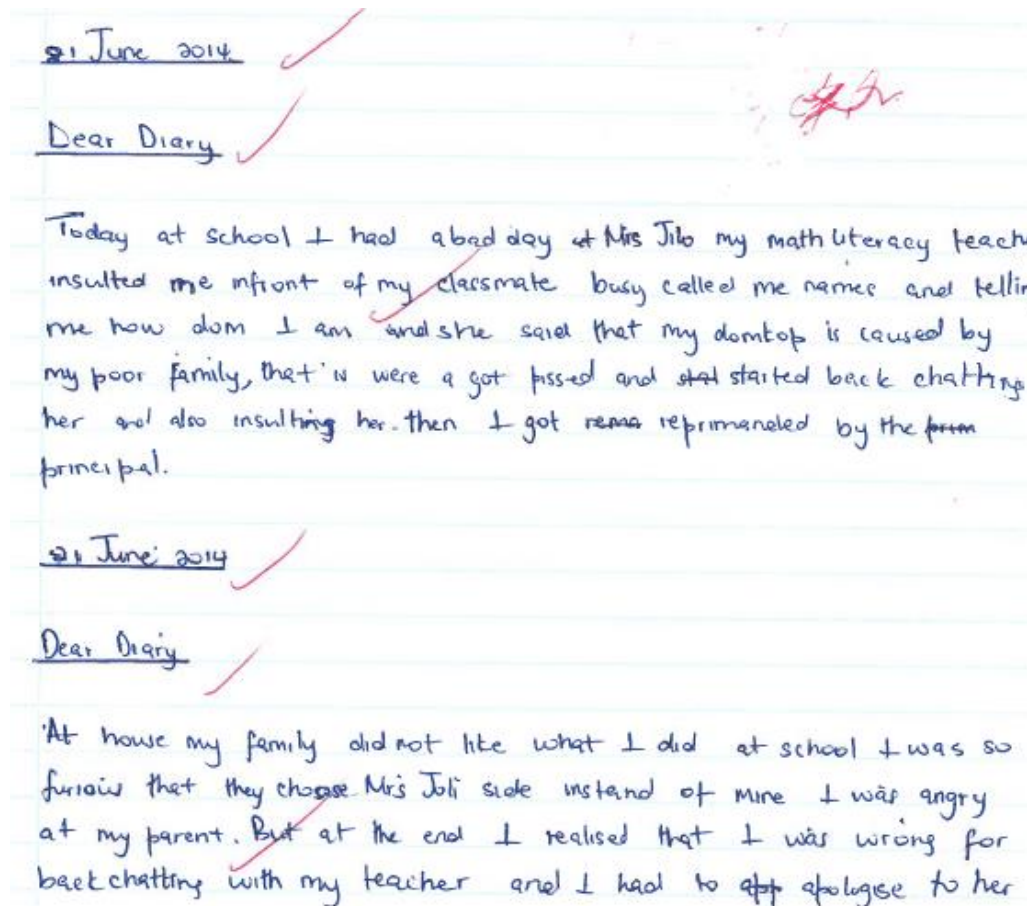 21 June 2014.
Dear Diary
Today at school I had a bad day at Mrs Jilo my math literacy teach
insulted me infront of my classmate busy called me names and tellin
me how dom I am and she said that my domtop is caused by
my poor family, that is were a got pissed and started back chatting
her and also insulting her. then I got reprimanded by the
principal.
21 June 2014
Dear Diary
At house my family did not like what I did at school I was so
furious that they choose Mrs Joli side instand of mine I was angry
at my parent. But at the end I realised that I was wrong for
backchatting with my teacher and I had to apologise to her